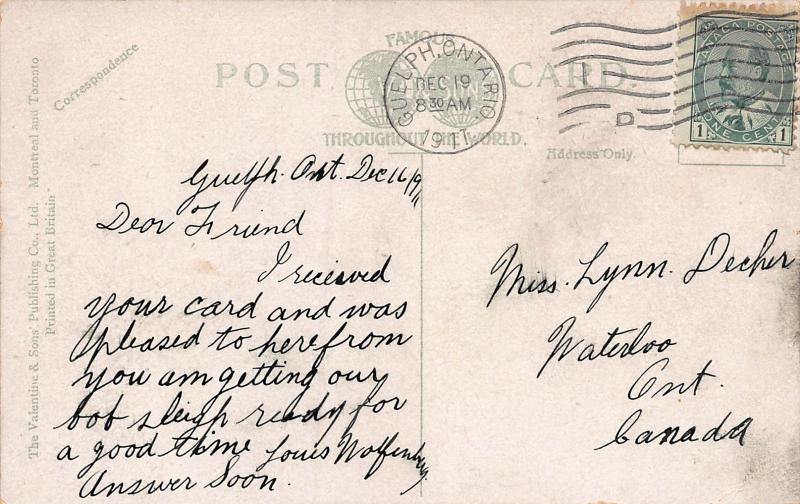 The Valentine & Sons' Publishing Co., Ltd. Montreal and Toronto
Printed in Great Britain
Correspondence
POST CARD.
FAMOUS
THROUGHOUT THE WORLD.
GUELPH, ONTARIO
DEC 19
8 30 AM
D
CANADA POSTAGE
1 1
ONE CENT
Address Only.
Guelph. Ont. Dec 16/911
Dear Friend
I received
your card and was
pleased to here from
you am getting our
bob sleigh ready for
a good time Louis
Answer Soon.
Miss. Lynn. Decher
Waterloo
Ont.
Canada